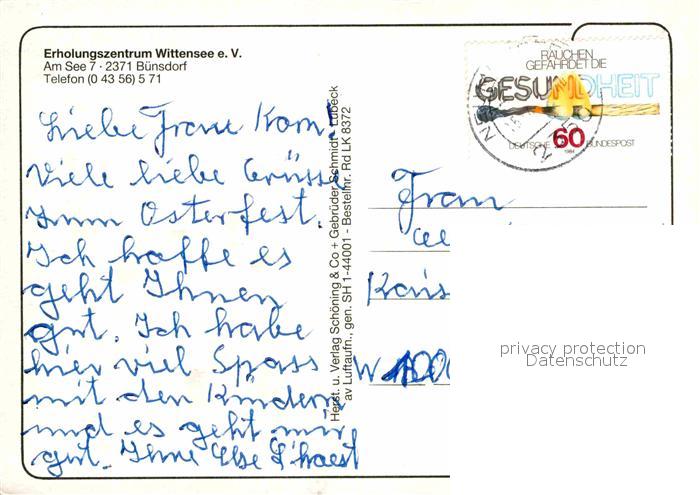 Erholungszentrum Wittensee e. V.
Am See 7 · 2371 Bünsdorf
Telefon (0 43 56) 5 71
Liebe Frau Korn!
Viele liebe Grüsse
zum Osterfest.
Ich hoffe es
geht Ihnen
gut. Ich habe
hier viel Spass
mit den Kindern
und es geht mir
gut. Ihre Else
Herst. u. Verlag Schöning & Co + Gebrüder Schmidt · Lübeck
av Luftaufn., gen. SH 1-44001 - Bestellnr. Rd LK 8372
RAUCHEN
GEFÄHRDET DIE
GESUNDHEIT
DEUTSCHE 60 BUNDESPOST
1984
Frau
W
privacy protection
Datenschutz